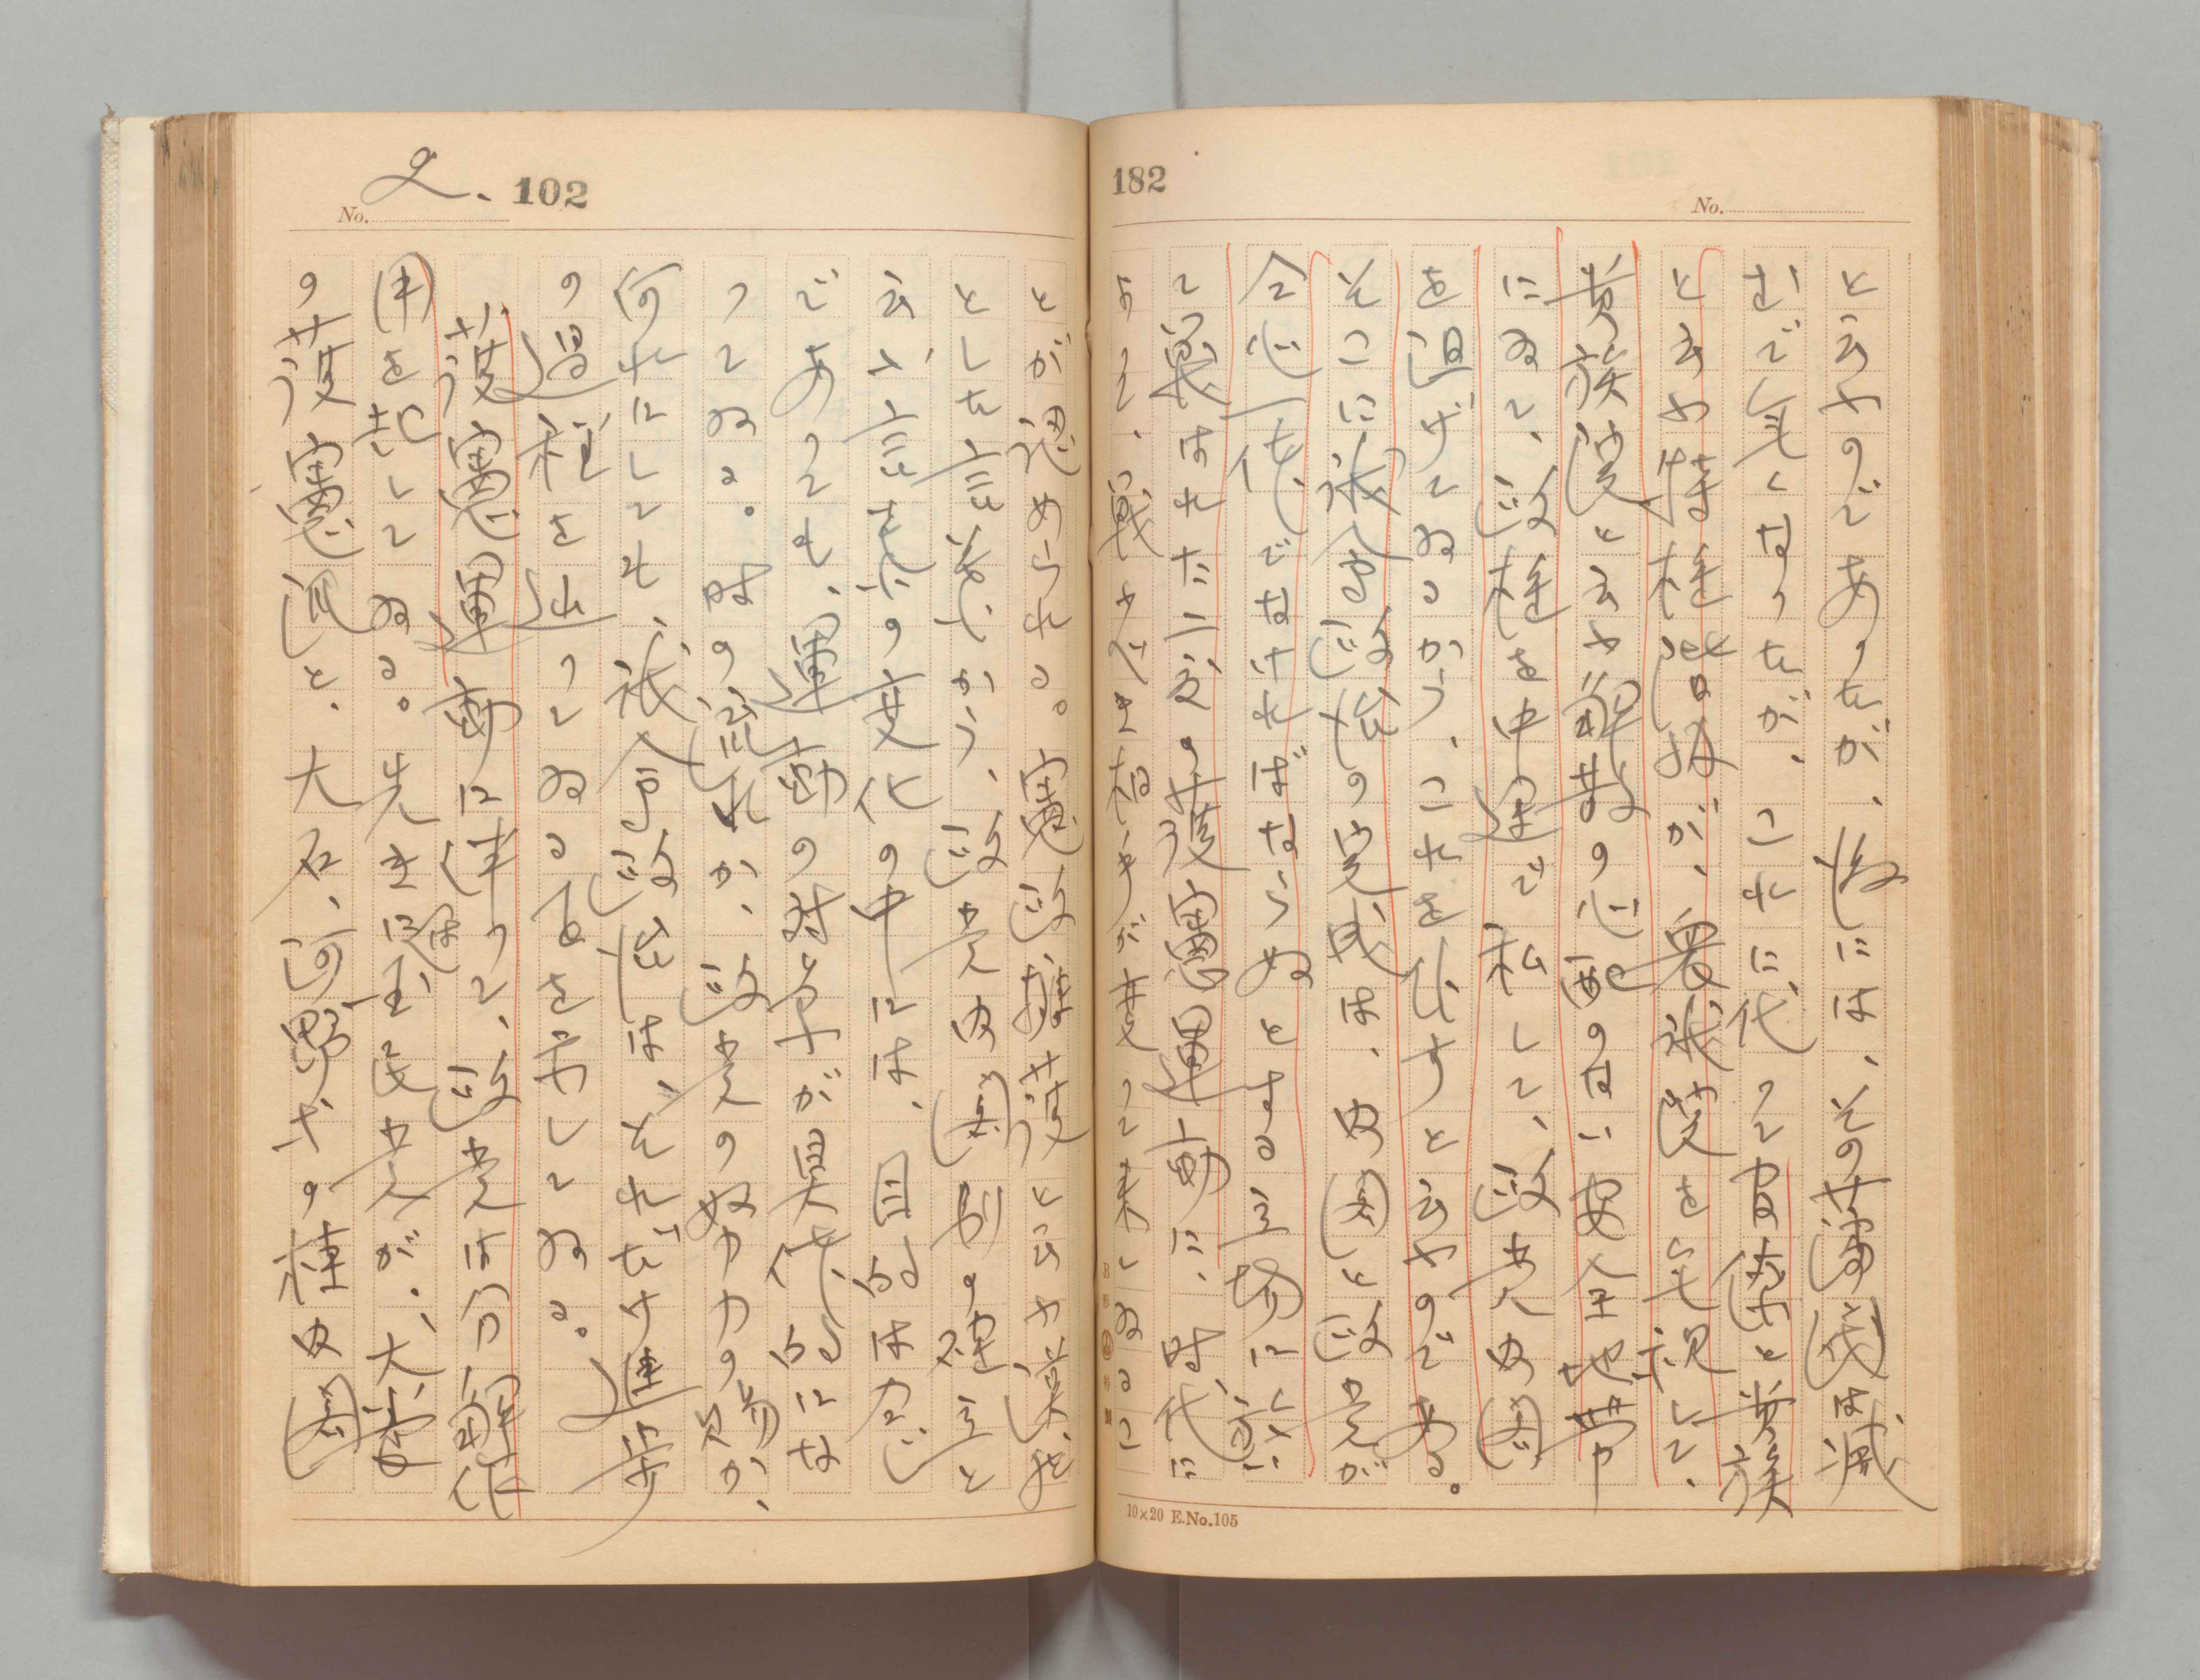 182
No.
と云ふのであつたが、後には、その藩閥は滅
んで無くなつたが、これに代つて官僚と貴族
と云ふ特権階級が、衆議院を無視して、
貴族院と云ふ解散の心配のない安全地帯
にゐて、政権を中途で私して、政党内閣
を阻げてゐるから、これを倒すと云ふのである。
そこに議会政治の完成は、内閣と政党が
全心一体でなければならぬとする立場に於い
て戦はれた二度の護憲運動に、時代に
よつて、戦ふべき相手が変つて来てゐるこ
10×20 E.No.105
No. 2. 102
とが認められる。憲政擁護と云ふ漠然
とした言葉から、政党内閣制の確立と
云ふ言葉への変化の中には、目的は同じ
であつても、運動の対象が具体的にな
つてゐる。時の流れか、政党の努力の賜か、
何れにしても、議会政治は、それだけ進歩
の過程を辿つてゐることを示してゐる。
護憲運動に伴つて、政党は分解作
用を起してゐる。先きに国民党が、大養
の護憲派と、大石、河野等の桂内閣